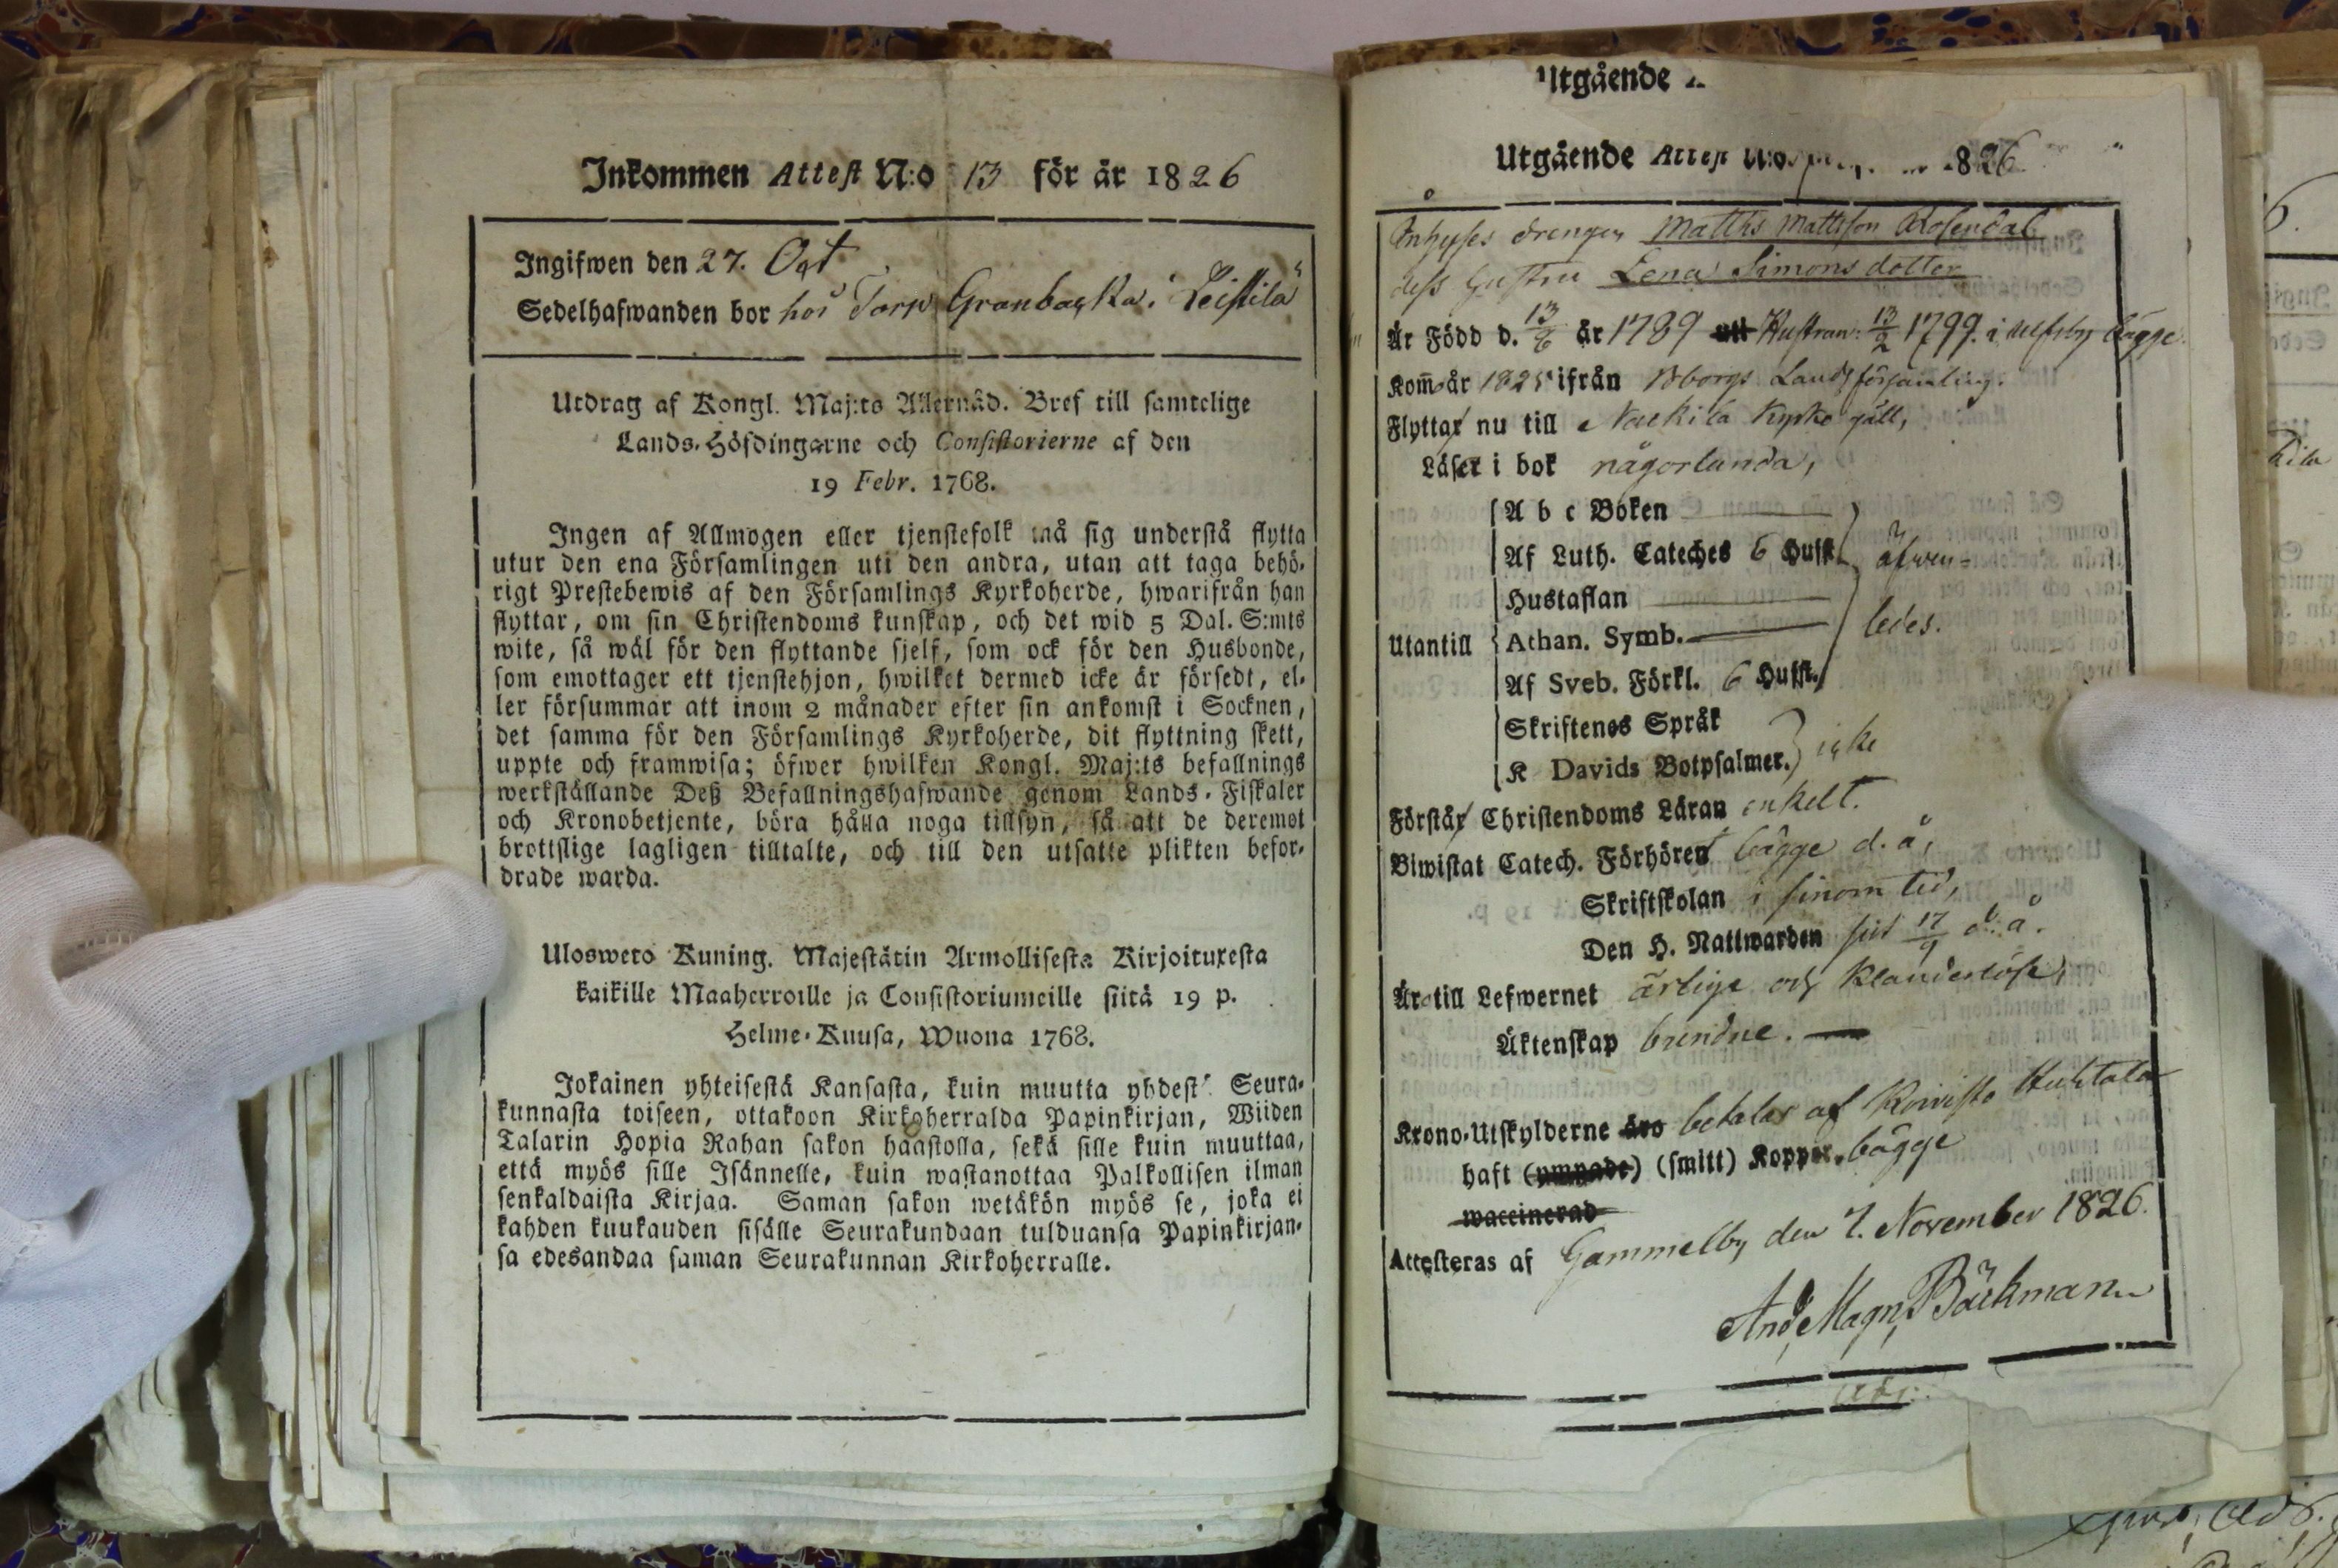 Inkommen Attest N:o 13 för år 1826
Ingifwen den 27. Oct
Sedelhafwanden bor hos Torp Granbacka i Leistilä
Utdrag af Kongl. Maj:ts Allernåd. Bref till samtelige
Lands-Höfdingarne och Consistorierne af den
19 Febr. 1768.
Ingen af Allmogen eller tjenstefolk må sig understå flytta
utur den ena Församlingen uti den andra, utan att taga behö-
rigt Prestebewis af den Församlings Kyrkoherde, hwarifrån han
flyttar, om sin Christendoms kunskap, och det wid 5 Dal. S:mts
wite, så wäl för den flyttande sjelf, som ock för den Husbonde,
som emottager ett tjenstehjon, hwilket dermed icke är försedt, el-
ler försummar att inom 2 månader efter sin ankomst i Socknen,
det samma för den Församlings Kyrkoherde, dit flyttning skett,
uppte och framwisa; öfwer hwilken Kongl. Maj:ts befallnings
werkställande Deß Befallningshafwande genom Lands-Fiskaler
och Kronobetjente, böra hålla noga tillsyn, så att de deremot
brottslige lagligen tilltalte, och till den utsatte plikten befor-
drade warda.
Ulosweto Kuning. Majestätin Armollisesta Kirjoituxesta
kaikille Maaherroille ja Consistoriumeille siitä 19 p.
Helme-Kuusa, Wuona 1768.
Jokainen yhteisestä Kansasta, kuin muutta yhdest' Seura-
kunnasta toiseen, ottakoon Kirkoherralda Papinkirjan, Wiiden
Talarin Hopia Rahan sakon haastolla, sekä sille kuin muuttaa,
että myös sille Isännelle, kuin wastanottaa Palkollisen ilman
senkaldaista Kirjaa. Saman sakon wetäkön myös se, joka ei
kahden kuukauden sisälle Seurakundaan tulduansa Papinkirjan-
sa edesandaa saman Seurakunnan Kirkoherralle.
Utgående
Utgående Attest N:o 1826
Inhyses drengen Matths Mattsson Rosendal
dess Hustru Lena Simons dotter
Är Född d. 13/6 år 1789 Hustran: 13/2 1799. i bägge
Kom år 1825 ifrån Borgo Landsförsamling.
Flyttar nu till Kyrko gäll,
Läser i bok någorlunda,
A b c Boken
Af Luth. Cateches 6 Hufst. äfwen-
Hustaflan
Utantill Athan. Symb. ledes.
Af Sveb. Förkl. 6 Hufst.
Skriftenes Språk
K Davids Botpsalmer. icke
Förstår Christendoms Läran enkelt.
Biwistat Catech. Förhöret bägge d. å,
Skriftskolan i sinom tid,
Den H. Nattwarden sist 17/9 d. å.
Äro till Lefwernet ärlige och klanderlöse,
Äktenskap bundne.
Krono-Utskylderne äro betalas af Koivisto Huhtala
haft (ympade) (smitt) Koppor. bägge
waccinerad
Attesteras af Gammelby den 7. November 1826.
And. Magn. Bäckman